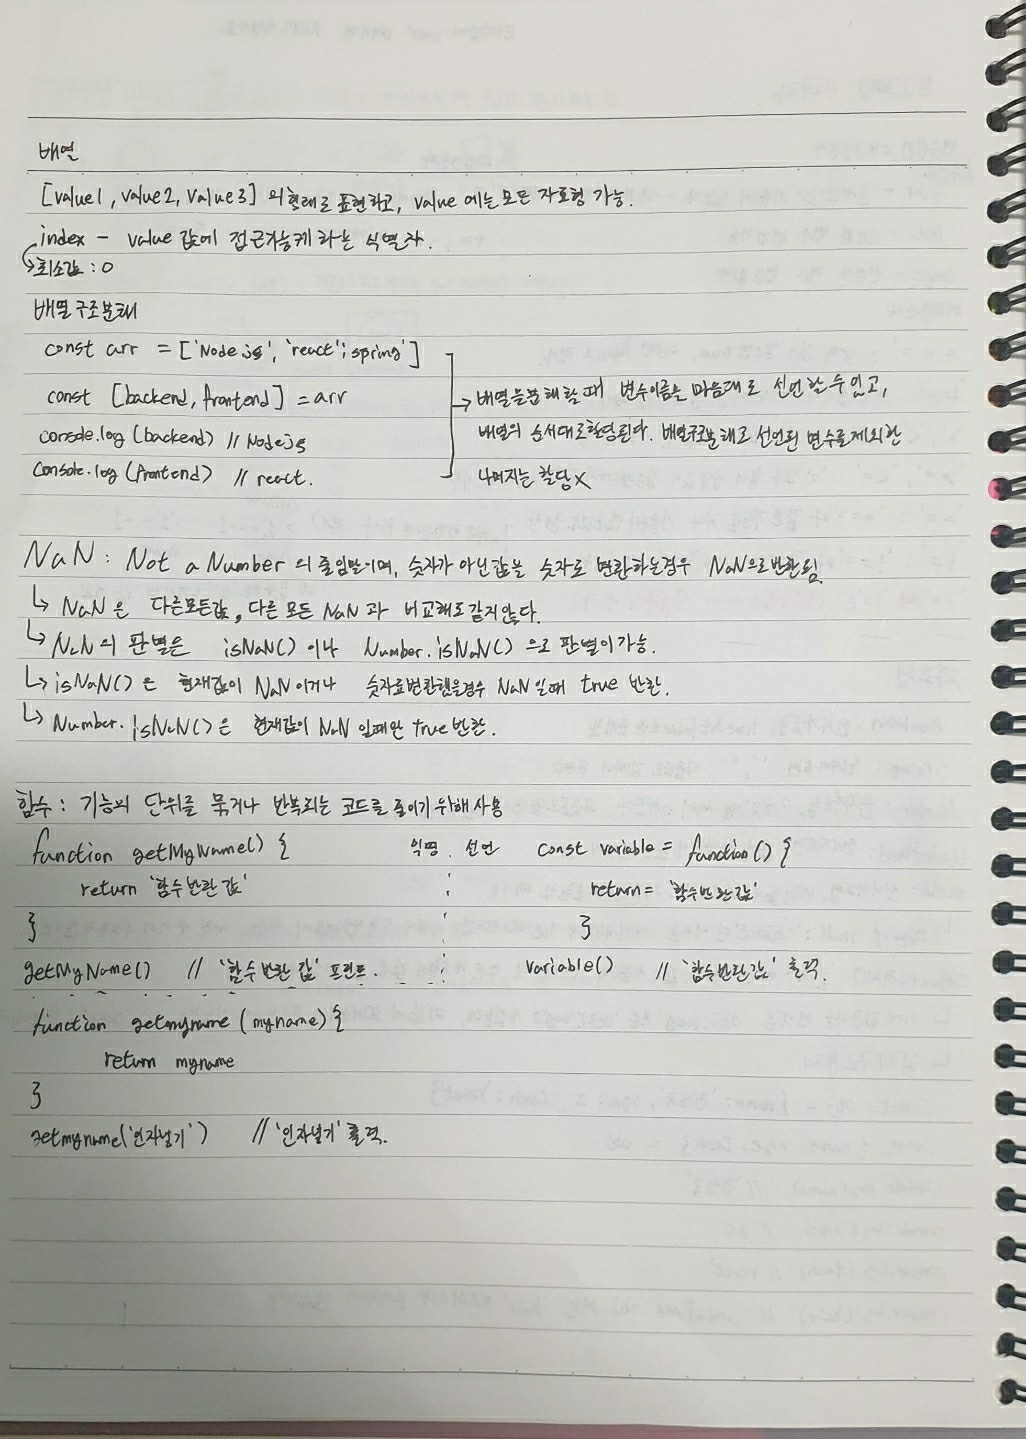 배열
[value1, value2, value3] 의 형태로 표현하고, value 에는 모든 자료형 가능.
index - value 값에 접근가능케 하는 식별자.
↳ 최소값 : 0
배열 구조분해
const arr = ['Node.js', 'react', 'spring']
const [backend, frontend] = arr
console.log(backend) // Nodejs
console.log(frontend) // react.
→ 배열을분해할때 변수이름을 마음대로 선언할수있고,
배열의 순서대로할당된다. 배열구조분해로 선언된 변수를제외한
나머지는 할당X
NaN : Not a Number 의 줄임말이며, 숫자가 아닌값을 숫자로 변환하는경우 NaN으로반환됨.
↳ NaN은 다른모든값, 다른 모든 NaN 과 비교해도같지않다.
↳ NaN의 판별은 isNaN() 이나 Number.isNaN() 으로 판별이가능.
↳ isNaN()은 현재값이 NaN 이거나 숫자로변환했을경우 NaN 일때 true 반환.
↳ Number.isNaN()은 현재값이 NaN 일때만 true 반환.
함수 : 기능의 단위를 묶거나 반복되는 코드를 줄이기 위해 사용
function getMyName() {
return '함수반환 값'
}
getMyName() // '함수 반환 값' 프린트.
익명 선언 const variable = function() {
return = '함수반환값'
}
variable() // '함수반환값' 출력.
function getmyname (myname) {
return myname
}
getmyname('인자넣기') // '인자넣기' 출력.